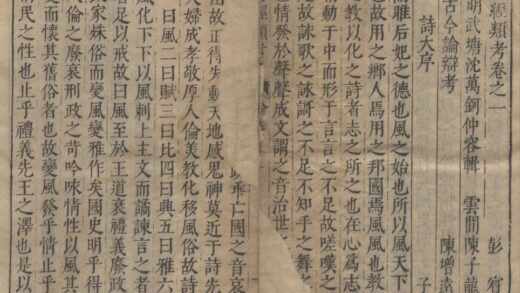 經類考卷之一 彭
明武塘沈萬鈳仲容輯 雲間陳子龍
古今論辯考 陳增
詩大序 子
雎后妃之德也風之始也所以風天下
也故用之鄉人焉用之邦國焉風風也教
之教以化之詩者志之所之也在心爲志
情動於中而形于言言之不足故嗟嘆之
之故詠歌之詠謌之不足不知手之舞
情發於聲聲成文謂之音治世
乖亡國之音哀
故正得失動天地感鬼神莫近于詩先
夫婦成孝敬厚人倫美教化移風俗故詩
曰風二曰賦三曰比四曰興五曰雅六
風化下下以風刺上主文而譎諫言之者
者足以戒故曰風至於王道衰禮義廢政
家殊俗而變風變雅作矣國史明乎得
人倫之廢哀刑政之苛吟咏情性以風其
變而懷其舊俗者也故變風發乎情止乎
民之性也止乎禮義先王之澤也是以